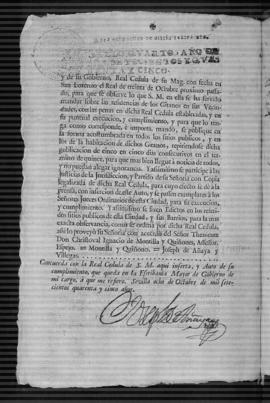 y de su Gobierno, Real Cedula de su Mag. con fecha en
San Lorenzo el Real de treinta de Octubre proximo passa-
do, para que se observe lo que S. M. en ella se ha servido
mandar sobre las residencias de los Gitanos en sus Vecin-
dades, con las penas en dicha Real Cedula establecidas, y en
su puntual execucion, y cumplimiento, y para que lo ten-
ga como corresponde, è importa, mandò, se publique en
la forma acostumbrada en todos los sitios publicos, y en
los de la habitacion de dichos Gitanos, repitiendose dicha
publicacion de cinco en cinco dias consecutivos en el ter-
mino de quince, para que mas bien llegue à noticia de todos,
y no puedan alegar ignorancia. Y assimismo se participe à las
Justicias de la Jurisdiccion, y Partido de su Señoria con Copia
legalizada de dicha Real Cedula, para cuyo efecto se dè à la
prensa, con insercion de este Auto, y se passen exemplares à los
Señores Juezes Ordinarios de esta Ciudad, para su execucion,
y cumplimiento. Y assimismo se fixen Edictos en los referi-
dos sitios publicos de esta Ciudad, y sus Barrios, para la mas
exacta observancia, como se ordena por dicha Real Cedula,
assi lo proveyò su Señoria con acuerdo del Señor Theniente
Don Christoval Ignacio de Montilla y Quiñones, Assessor.
Espejo. = Montilla y Quiñones. = Joseph de Añaya y
Villegas.
Concuerda con la Real Cedula de S. M. aqui inserta, y Auto de su
cumplimiento, que queda en la Escribania Mayor de Gobierno de
mi cargo, à que me refiero. Sevilla ocho de Octubre de mil sete-
cientos quarenta y cinco años.